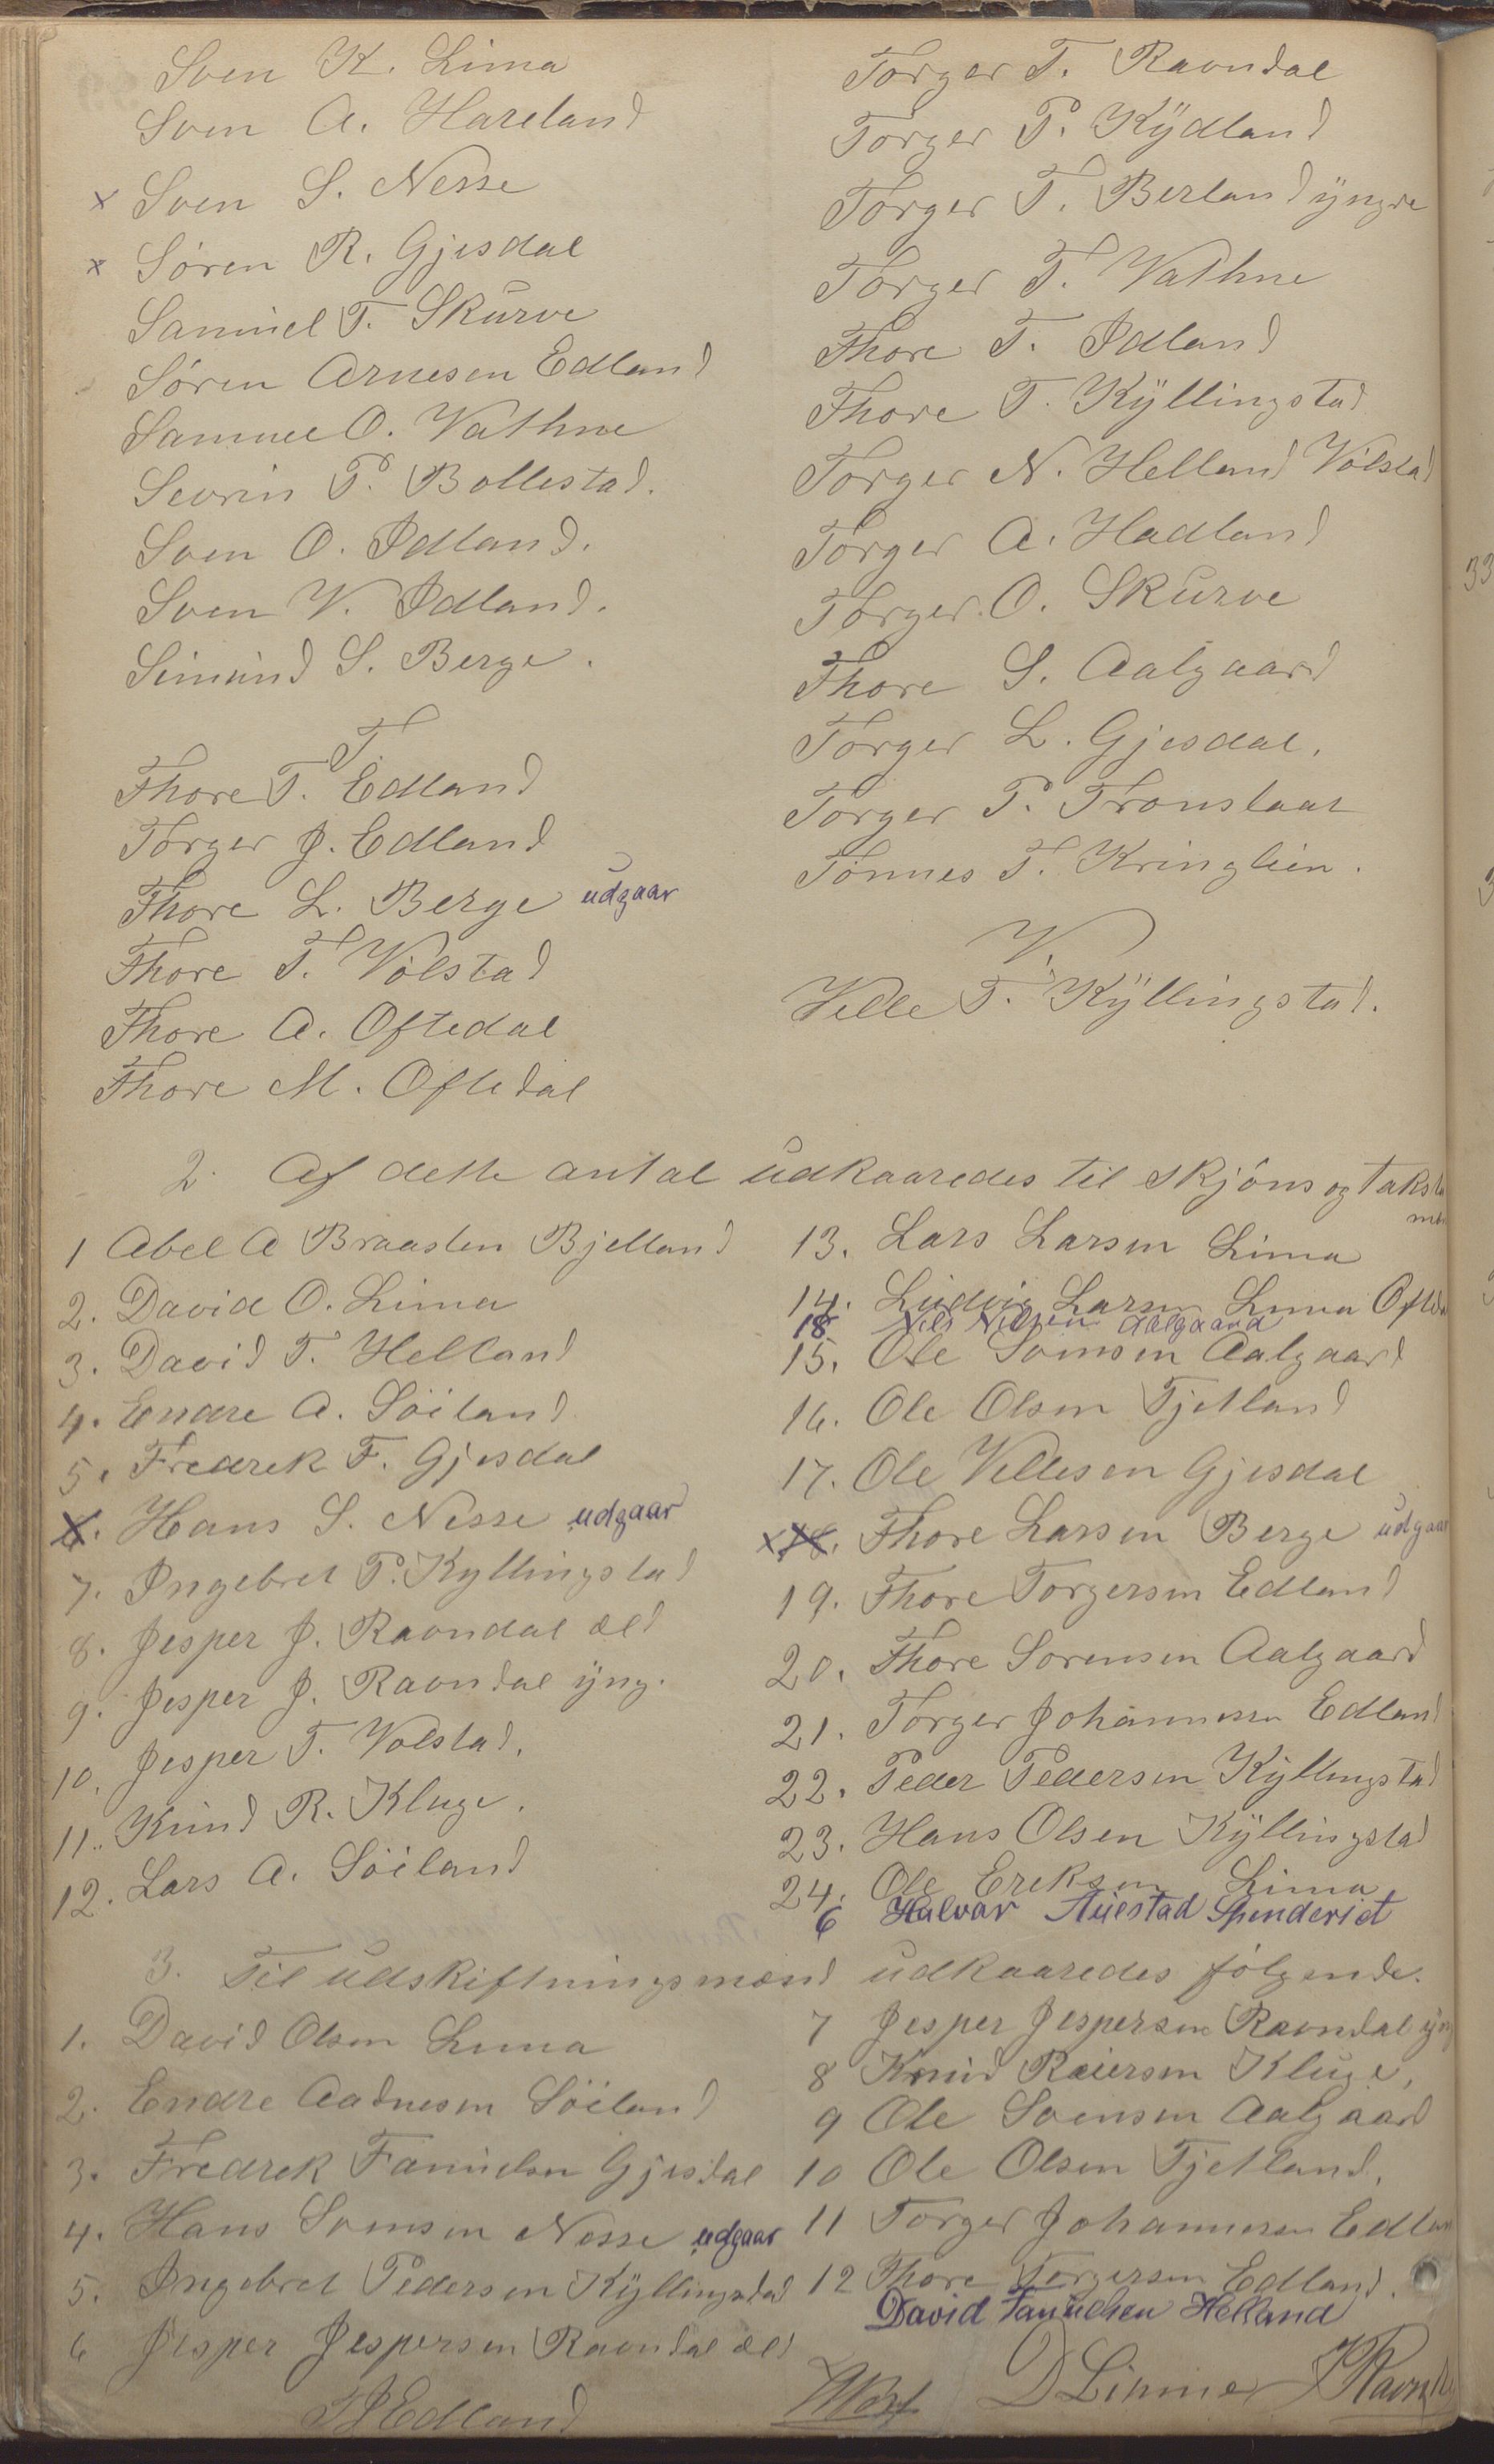 Sven K. Lima
Sven A. Hareland
x Sven S. Nesse
x Søren R. Gjesdal
Samuel T. Skurve
Søren Arnesen Edland
Samuel O. Vathne
Sevrin P. Bollestad.
Sven O. Idland.
Sven V. Idland.
Simund S. Berge.
T.
Thore T. Edland
Torger J. Edland
Thore L. Berge udgaar
Thore T. Vølstad
Thore A. Oftedal
Thore M. Oftedal
Torger T. Ravndal
Torger P. Kÿdland
Torger T. Berland ÿngre
Torger T. Vathne
Thore T. Idland
Thore T. Kÿllingstad
Torger N. Helland Vølstad
Torger A. Hadland
Torger O. Skurve
Thore S. Aalgaard
Torger L. Gjesdal.
Torger P. Fronstaat
Tønnes T. Kringlien.
V.
Velle T. Kÿllingstad.
2. Af dette antal udkaaredes til skjöns og takst
1 Abel A Braasten Bjelland
2. David O. Lima
3. David T. Helland
4. Endre A. Söiland
5. Fredrek F. Gjesdal
6. Hans S. Nesse udgaar
7. Ingebret P. Kyllingstad
8. Jesper J. Ravndal æld
9. Jesper J. Ravndal ÿng.
10. Jesper T. Volstad.
11. Knud R. Kluge.
12. Lars A. Söiland
13. Lars Larsen Lima
14. Ludvig Larsen Lima Ofteda
18 Nils Nilsen Aalgaard
15. Ole Svensen Aalgaard
16. Ole Olsen Tjetland
17. Ole Vellesen Gjesdal
x 18. Thore Larsen Berge udgaar
19. Thore Torgersen Edland
20. Thore Sorensen Aalgaard
21. Torger Johannesen Edland
22. Peder Pedersen Kÿllingstad
23. Hans Olsen Kÿllingstad
24. Ole Ereksen Lima
6 Halvar Auestad Spenderiet
3. Til udskiftningsmænd udkaaredes følgende.
1. David Olsen Lima
2. Endre Aadnesen Söiland
3. Fredrek Famuelsen Gjesdal
4. Hans Svensen Nesse udgaar
5. Ingebret Pedersen Kÿllingstad
6 Jesper Jespersen Ravndal æld
7 Jesper Jespersen Ravndal ÿng
8 Knud Reiersen Kluge,
9 Ole Svensen Aalgaard
10 Ole Olsen Tjetland,
11 Torger Johannesen Edland
12 Thore Torgersen Edland.
David Fanuelsen Helland
TJEdland
DLimme
JRavnd